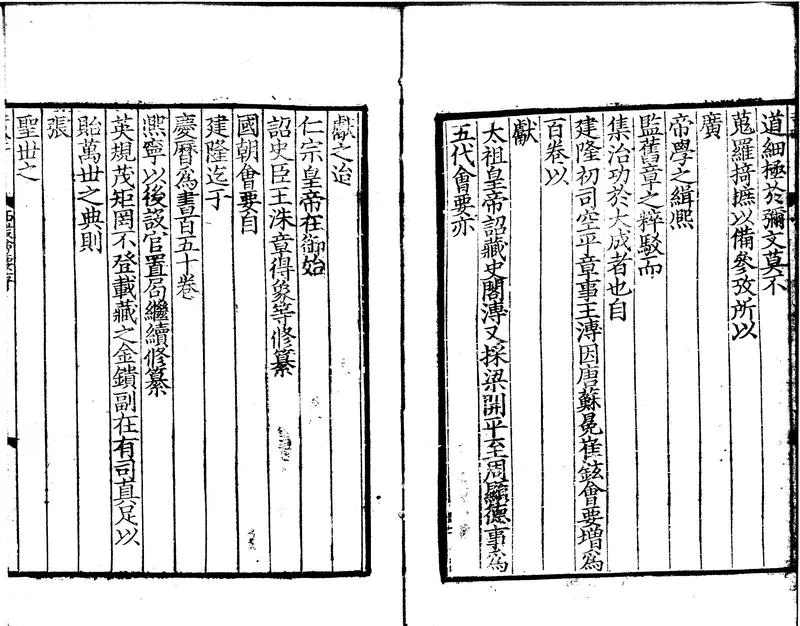 道細極於彌文莫不
蒐羅掎摭以備參攷所以
廣
帝學之緝熙
監舊章之粹駁而
集治功於大成者也自
建隆初司空平章事王溥因唐蘇冕崔鉉會要增為
百卷以
獻
太祖皇帝詔藏史閣溥又採梁開平至周顯德事為
五代會要亦
獻之迨
仁宗皇帝在御始
詔史臣王洙章得象等修纂
國朝會要自
建隆迄于
慶曆為書百五十卷
熈寧以後設官置局繼續修纂
英規茂矩罔不登載藏之金鐀副在有司真足以
貽萬世之典則
張
聖世之